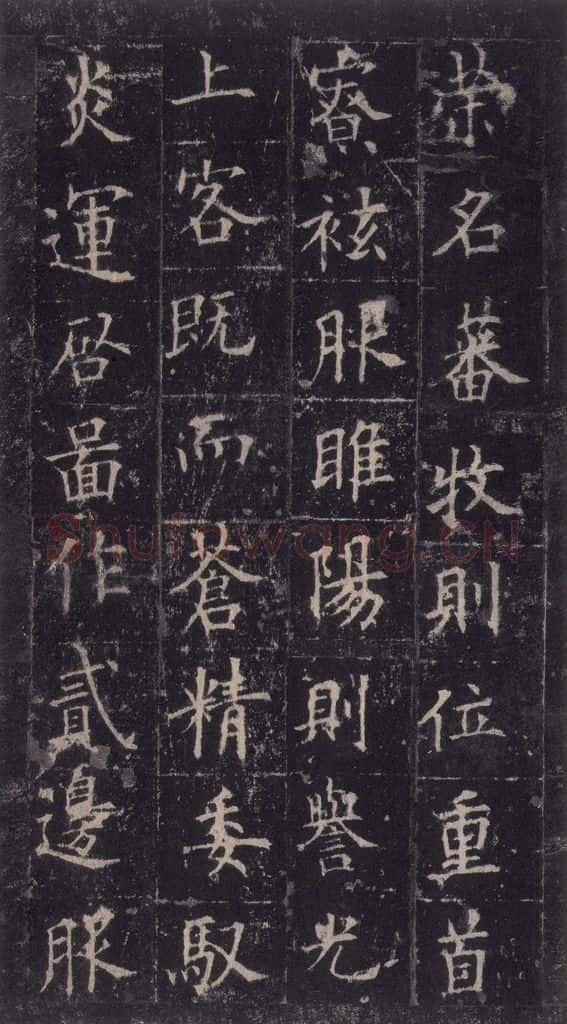 荣名蕃牧則位重首
寮袨服睢陽則譽光
上客既而蒼精委馭
炎運啓啚作貳邊服
Shufawang.CN